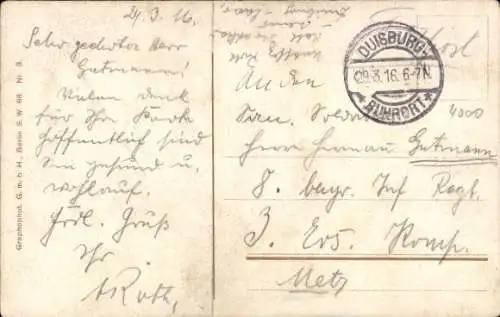 29.3.16.
Sehr geehrter Herr
Gutmann!
Vielen Dank
für Ihre Karte
hoffentlich sind
Sie gesund u.
wohlauf.
Frdl. Grüß
Ihr
A Roth,
Graphophot. G. m. b. H., Berlin S. W. 68 Nr. 3.
DUISBURG-
29.3.16.6-7N
* RUHRORT *
An den
San. Soldat
Herrn Hermann Gutmann
8. bayr. Inf Regt.
3. Ers. Komp.
Metz